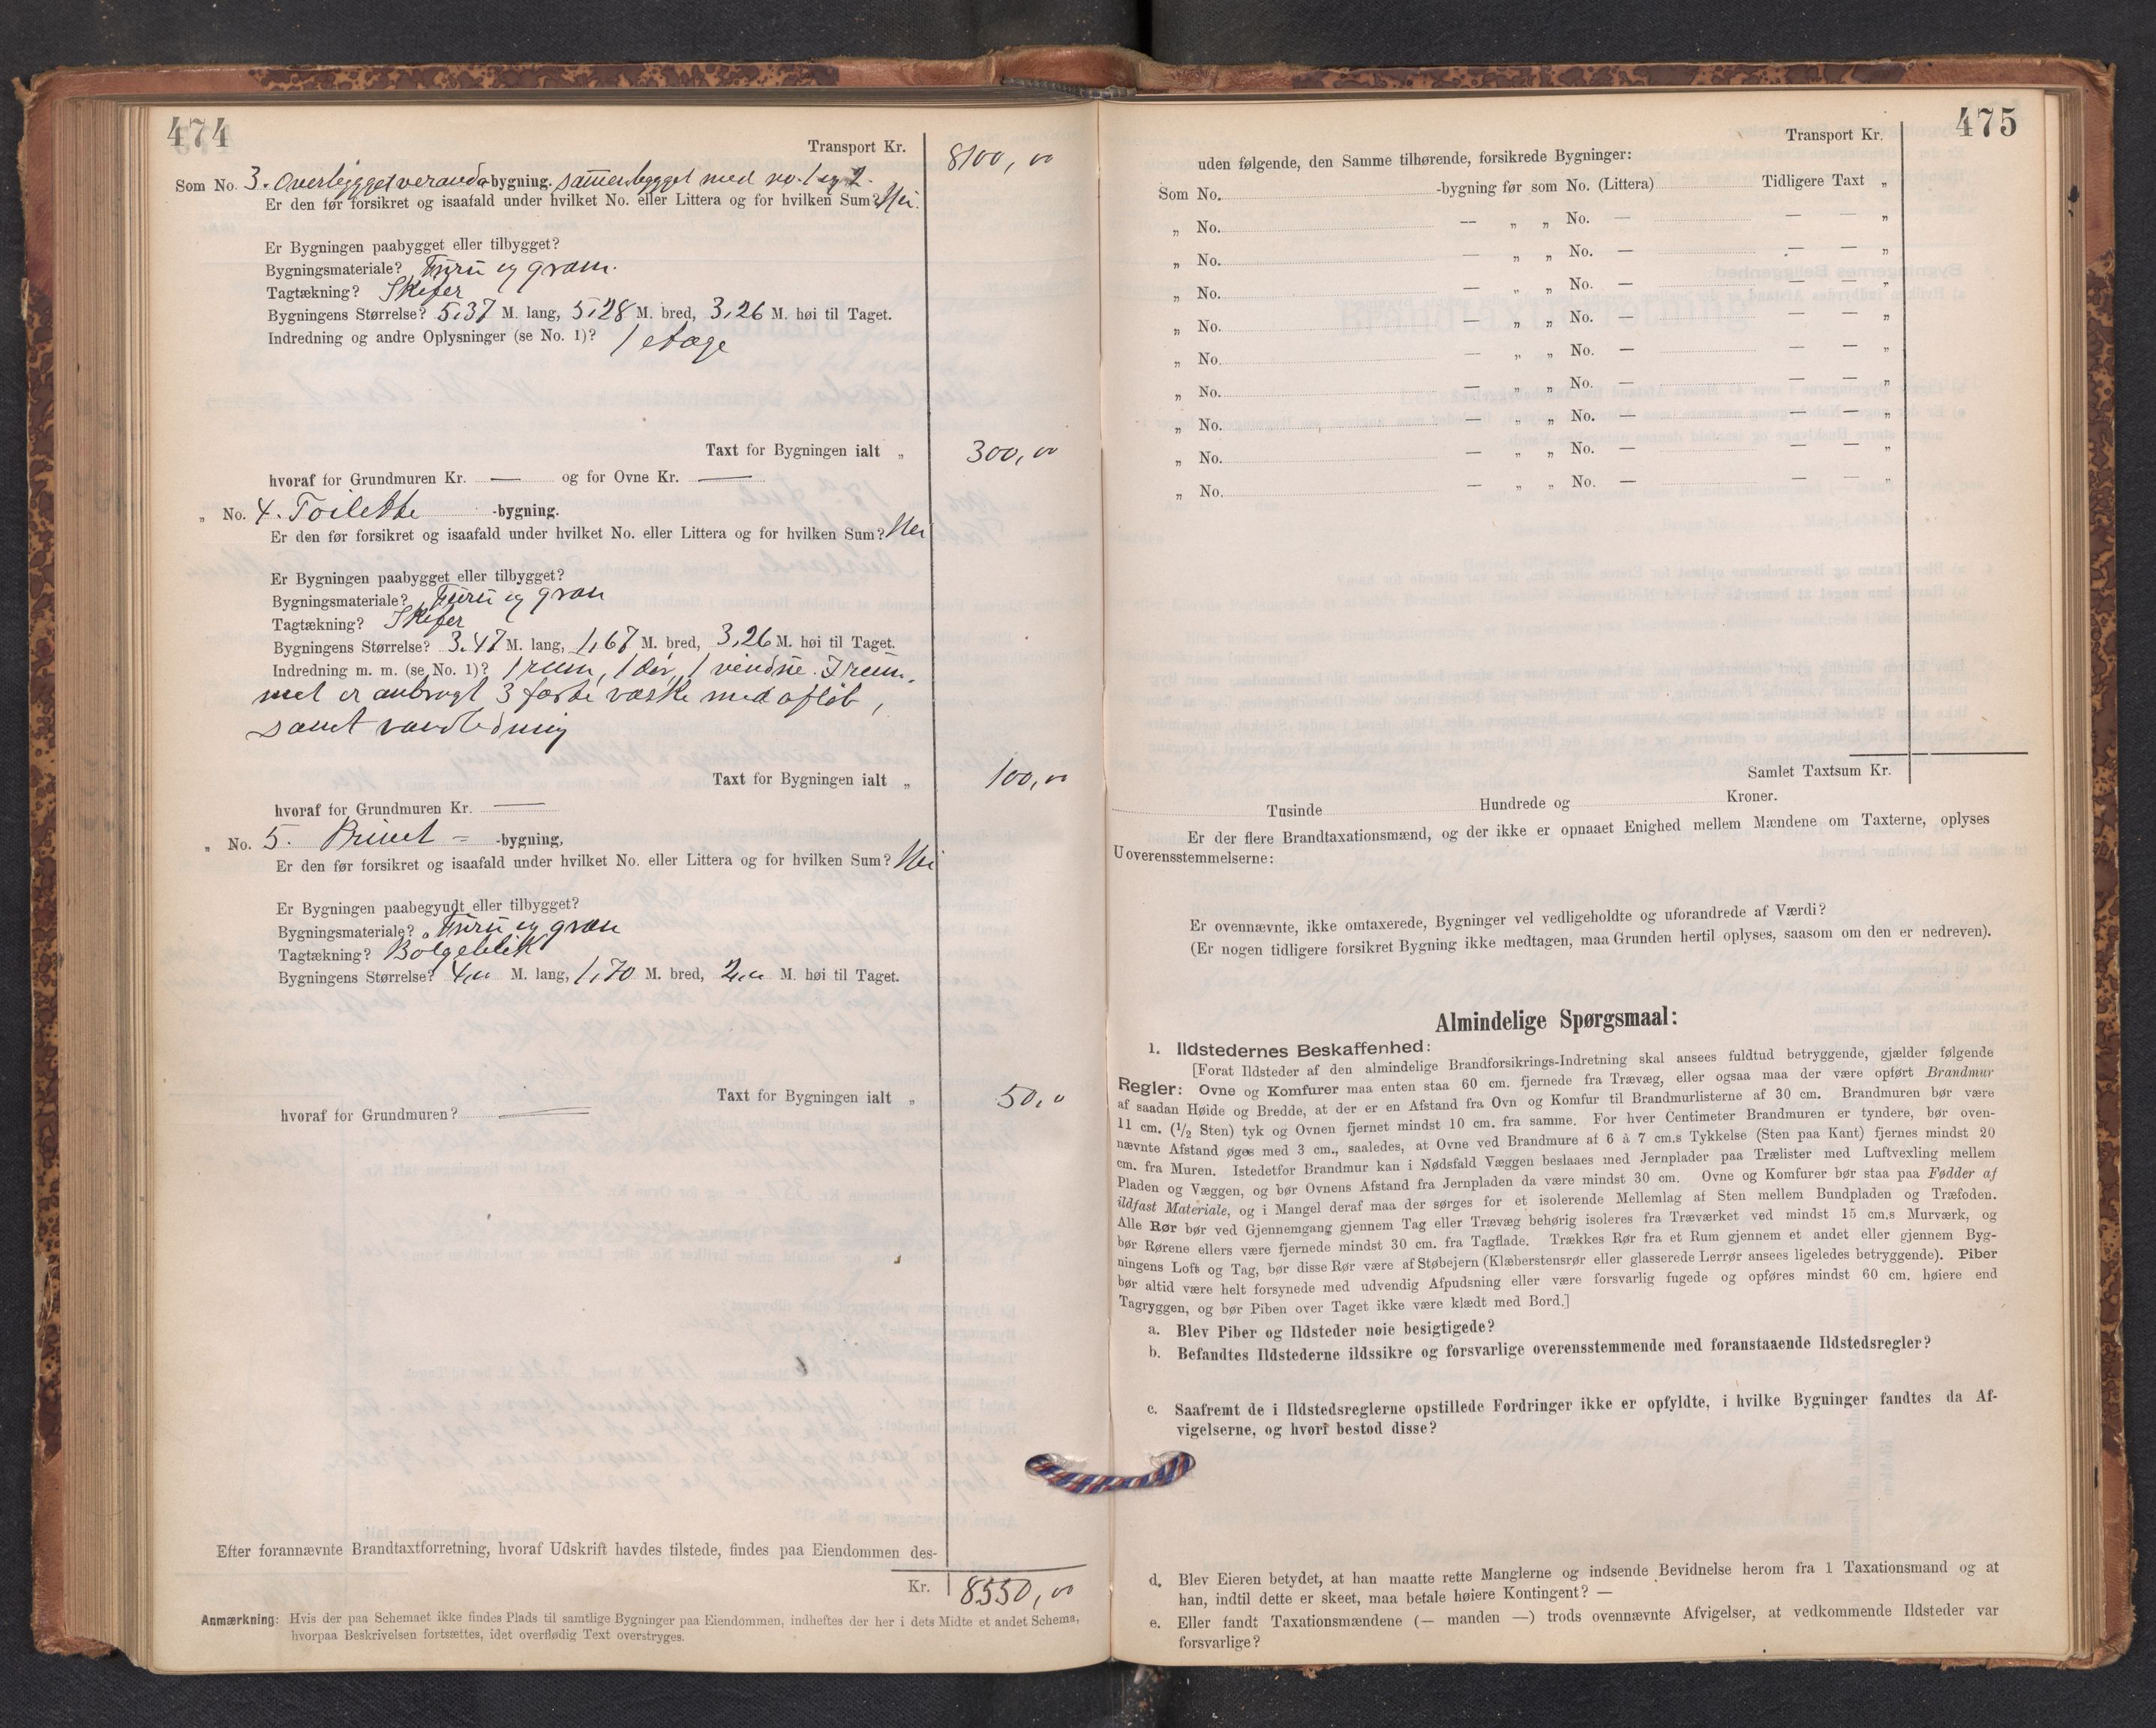 474
Transport Kr. 8100,00
Som No. 3. Overbygget veranda-bygning. sammenbygget med no. 1 og 2.
Er den før forsikret og isaafald under hvilket No. eller Littera og for hvilken Sum? Nei.
Er Bygningen paabygget eller tilbygget?
Bygningsmateriale? Furu og gran.
Tagtækning? Skifer
Bygningens Størrelse? 5,37 M. lang, 5,28 M. bred, 3,26 M. høi til Taget.
Indredning og andre Oplysninger (se No. 1)? 1 etage
Taxt for Bygningen ialt „ 300,00
hvoraf for Grundmuren Kr. — og for Ovne Kr. —
„ No. 4. Toilette -bygning.
Er den før forsikret og isaafald under hvilket No. eller Littera og for hvilken Sum? Nei
Er Bygningen paabygget eller tilbygget?
Bygningsmateriale? Furu og gran
Tagtækning? Skifer
Bygningens Størrelse? 3.47 M. lang, 1,67 M. bred, 3,26 M. høi til Taget.
Indredning m. m. (se No. 1)? 1 rum, 1 dør, 1 vindue. I rum-
met er anbragt 3 faste vaske med afløb,
samt vandledning
Taxt for Bygningen ialt „ 100,00
hvoraf for Grundmuren Kr. —
„ No. 5. Privet - -bygning,
Er den før forsikret og isaafald under hvilket No. eller Littera og for hvilken Sum? Nei
Er Bygningen paabegyndt eller tilbygget?
Bygningsmateriale? Furu og gran
Tagtækning? Bølgeblik
Bygningens Størrelse? 4,00 M. lang, 1,70 M. bred, 2,00 M. høi til Taget.
Taxt for Bygningen ialt „ 50,00
hvoraf for Grundmuren? —
Efter forannævnte Brandtaxtforretning, hvoraf Udskrift havdes tilstede, findes paa Eiendommen des-
Kr. 8550,00
Anmærkning: Hvis der paa Schemaet ikke findes Plads til samtlige Bygninger paa Eiendommen, indheftes der her i dets Midte et andet Schema,
hvorpaa Beskrivelsen fortsættes, idet overflødig Text overstryges.
475
Transport Kr.
uden følgende, den Samme tilhørende, forsikrede Bygninger:
Som No. -bygning før som No. (Littera) Tidligere Taxt „
„ No. — „ „ No. — — — „
„ No. — „ „ No. — — — „
„ No. — „ „ No. — — — „
„ No. — „ „ No. — — — „
„ No. — „ „ No. — — — „
„ No. — „ „ No. — — — „
„ No. — „ „ No. — — — „
„ No. — „ „ No. — — — „
„ No. — „ „ No. — — — „
Samlet Taxtsum Kr.
Tusinde Hundrede og Kroner.
Er der flere Brandtaxationsmænd, og der ikke er opnaaet Enighed mellem Mændene om Taxterne, oplyses
Uoverensstemmelserne:
Er ovennævnte, ikke omtaxerede, Bygninger vel vedligeholdte og uforandrede af Værdi?
(Er nogen tidligere forsikret Bygning ikke medtagen, maa Grunden hertil oplyses, saasom om den er nedreven).
Almindelige Spørgsmaal:
1. Ildstedernes Beskaffenhed:
[Forat Ildsteder af den almindelige Brandforsikrings-Indretning skal ansees fuldtud betryggende, gjælder følgende
Regler: Ovne og Komfurer maa enten staa 60 cm. fjernede fra Trævæg, eller ogsaa maa der være opført Brandmur
af saadan Høide og Bredde, at der er en Afstand fra Ovn og Komfur til Brandmurlisterne af 30 cm. Brandmuren bør være
11 cm. (1/2 Sten) tyk og Ovnen fjernet mindst 10 cm. fra samme. For hver Centimeter Brandmuren er tyndere, bør oven-
nævnte Afstand øges med 3 cm., saaledes, at Ovne ved Brandmure af 6 à 7 cm.s Tykkelse (Sten paa Kant) fjernes mindst 20
cm. fra Muren. Istedetfor Brandmur kan i Nødsfald Væggen beslaaes med Jernplader paa Trælister med Luftvexling mellem
Pladen og Væggen, og bør Ovnens Afstand fra Jernpladen da være mindst 30 cm. Ovne og Komfurer bør staa paa Fødder af
ildfast Materiale, og i Mangel deraf maa der sørges for et isolerende Mellemlag af Sten mellem Bundpladen og Træfoden.
Alle Rør bør ved Gjennemgang gjennem Tag eller Trævæg behørig isoleres fra Træværket ved mindst 15 cm.s Murværk, og
bør Rørene ellers være fjernede mindst 30 cm. fra Tagflade. Trækkes Rør fra et Rum gjennem et andet eller gjennem Byg-
ningens Loft og Tag, bør disse Rør være af Støbejern (Klæberstensrør eller glasserede Lerrør ansees ligeledes betryggende). Piber
bør altid være helt forsynede med udvendig Afpudsning eller være forsvarlig fugede og opføres mindst 60 cm. høiere end
Tagryggen, og bør Piben over Taget ikke være klædt med Bord.]
a. Blev Piber og Ildsteder nøie besigtigede?
b. Befandtes Ildstederne ildssikre og forsvarlige overensstemmende med foranstaaende Ildstedsregler?
c. Saafremt de i Ildstedsreglerne opstillede Fordringer ikke er opfyldte, i hvilke Bygninger fandtes da Af-
vigelserne, og hvori bestod disse?
d. Blev Eieren betydet, at han maatte rette Manglerne og indsende Bevidnelse herom fra 1 Taxationsmand og at
han, indtil dette er skeet, maa betale høiere Kontingent? —
e. Eller fandt Taxationsmændene (— manden —) trods ovennævnte Afvigelser, at vedkommende Ildsteder var
forsvarlige?